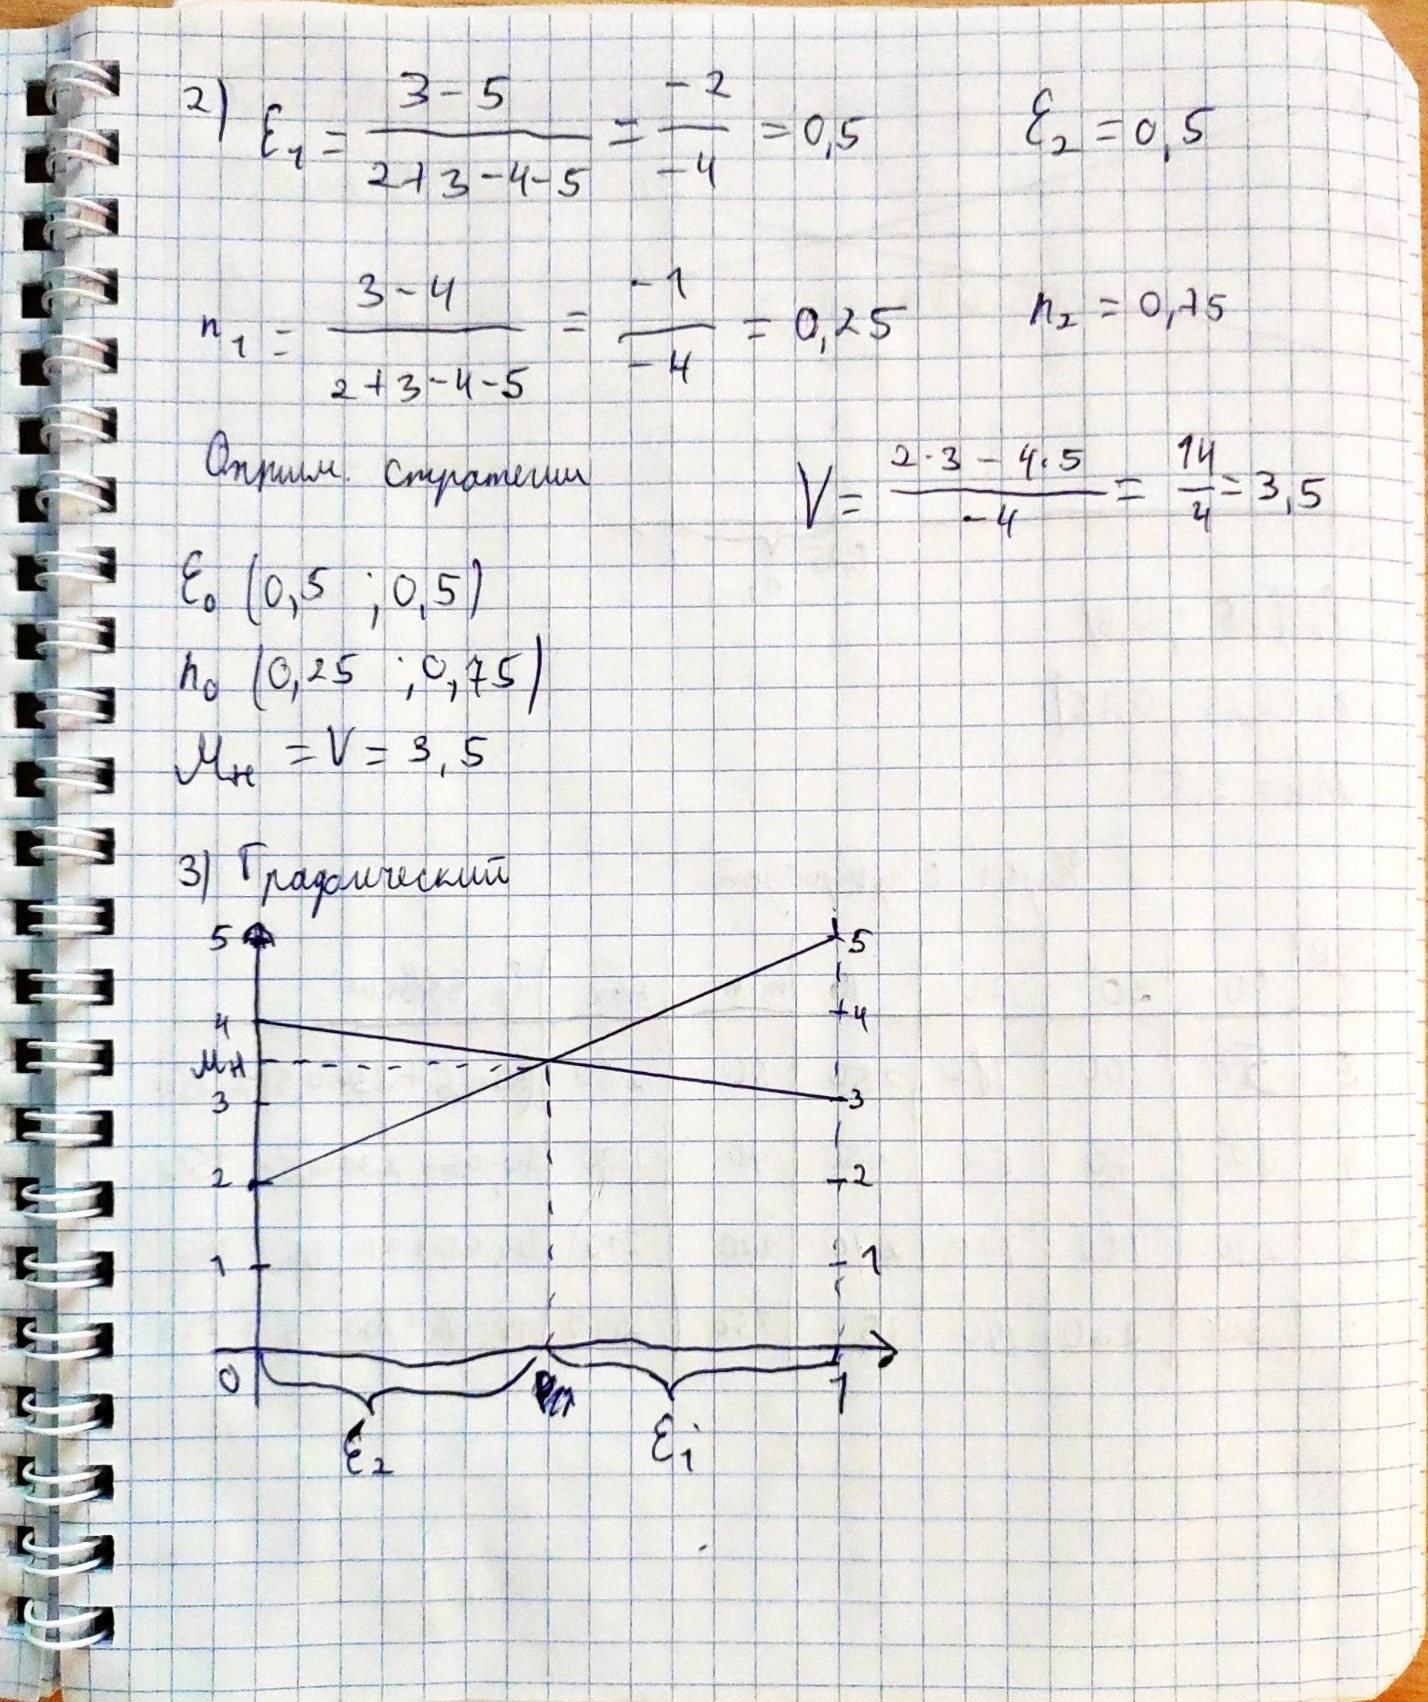 2) ℰ₁ = (3-5)/(2+3-4-5) = -2/-4 = 0,5 ℰ₂ = 0,5
n₁ = (3-4)/(2+3-4-5) = -1/-4 = 0,25 n₂ = 0,75
Оптим. стратегии V = (2·3 - 4·5)/-4 = 14/4 = 3,5
ℰ₀ (0,5 ; 0,5)
n₀ (0,25 ; 0,75)
Мн = V = 3,5
3) Графический
5 5
4 4
Мн
3 3
2 2
1 1
0 1
ℰ₂ ℰ₁